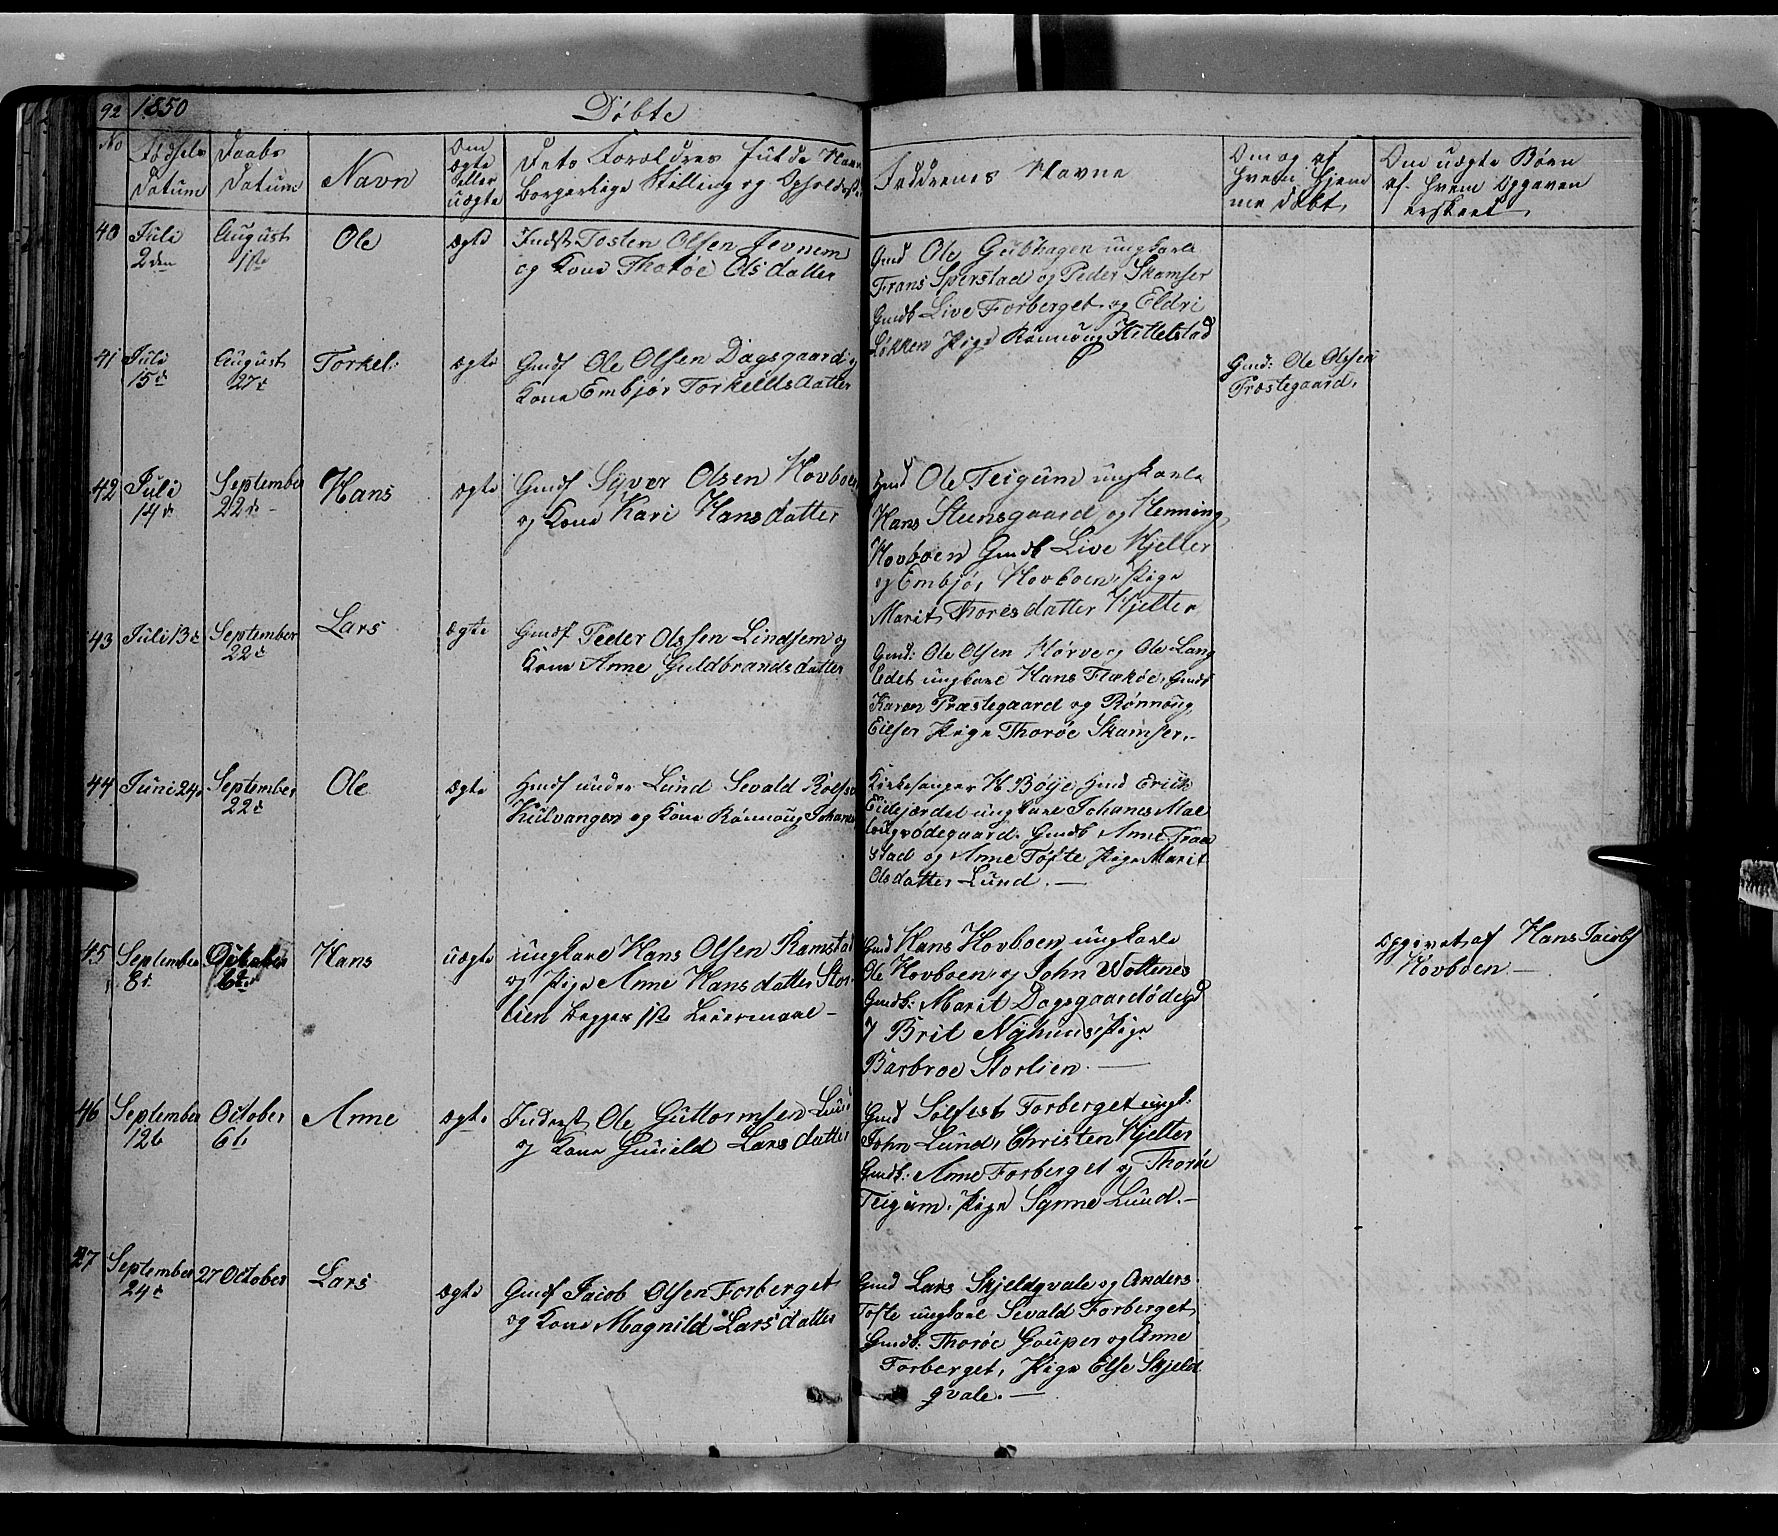 92 1850 Døbte
No Fødsels Datum Daabs Datum Navn Om ægte eller uægte Dets Forældres fulde Navn borgerlige Stilling og Opholdsst. Faddrenes Navne Om og af hvem hjemme døbt Om uægte Børn af hvem Opgaven er skeet
40 Juli 2den August 1ste Ole ægte Indst Tosten Olsen Jevnem
og Kone Thorøe Olsdatter
Gmd Ole Gubhagen ungkarle
Frans Sperstad og Peder Skamser
Gmdk Live Forberget og Eldri
Løkken Pige Rønnoug Kittelstad
41 Juli 15de August 27de Torkel: ægte Gmdf Ole Olsen Dagsgaard og
Kone Embjør Torkeldsdatter
Gmd: Ole Olssen
Præstegaard.
42 Juli 14de September 22de Hans ægte Gmdf Syver Olsen Hovboen
og Kone Kari Hansdatter
Gmd Ole Teigum ungkarle
Hans Stensgaard og Henning
Hovboen Gmdk Live Kjelter
og Embjør Hovboen, Pige
Marit Thoresdatter Kjelter
43 Juli 13de September 22de Lars ægte Gmdf Peder Olssen Lindsem og
Kone Anne Guldbrandsdatter
Gmd: Ole Olsen Hørve og Ole Lang
ledet ungkarl Hans Flækøe, Gmdk
Karen Præstegaard og Rønnoug
Eilser Pige Thorøe Skamser.
44 Juni 24de September 22de Ole ægte Hmdf under Lund Sevald Rolfsen
Kulvangen og Kone Rønnoug Johanes
Kirkesanger H Bøye Gmd Erich
Eidejærdet ungkarl Johanes Mæl
ødegaard. Gmdk Anne Fraa
stad og Anne Tofte Pige Marit
Olsdatter Lund. —
45 September 8de October 6te Hans uægte ungkarl Hans Olsen Ramstad
og Pige Anne Hansdatter Stor
lien begges 1ste Leiermaal —
Gmd Hans Hovboen ungkarle
Ole Hovboen og John Wottenes
Gmdk: Marit Dagsgaardødegd
Brit Nyhuus, Pige
Barbroe Storlien —
Opgivet af Hans Jacobs
Hovboen —
46 September 12te October 6te Anne ægte Inderst Ole Guttormsen Lund
og Kone Gunild Larsdatter
Gmd Solfest Forberget ungk.
John Lund, Christen Kjelter
Gmdk: Anne Forberget og Thorøe
Teigum. Pige Synne Lund. —
47 September 24de 27 October Lars ægte Gmdf Jacob Olsen Forberget
og Kone Magnild Larsdatter
Gmd Lars Skjeldqvale og Anders
Tofte ungkarl Sevald Forberget
Gmdk: Thorøe Gouper og Anne
Forberget, Pige Else Skjeld
qvale. —